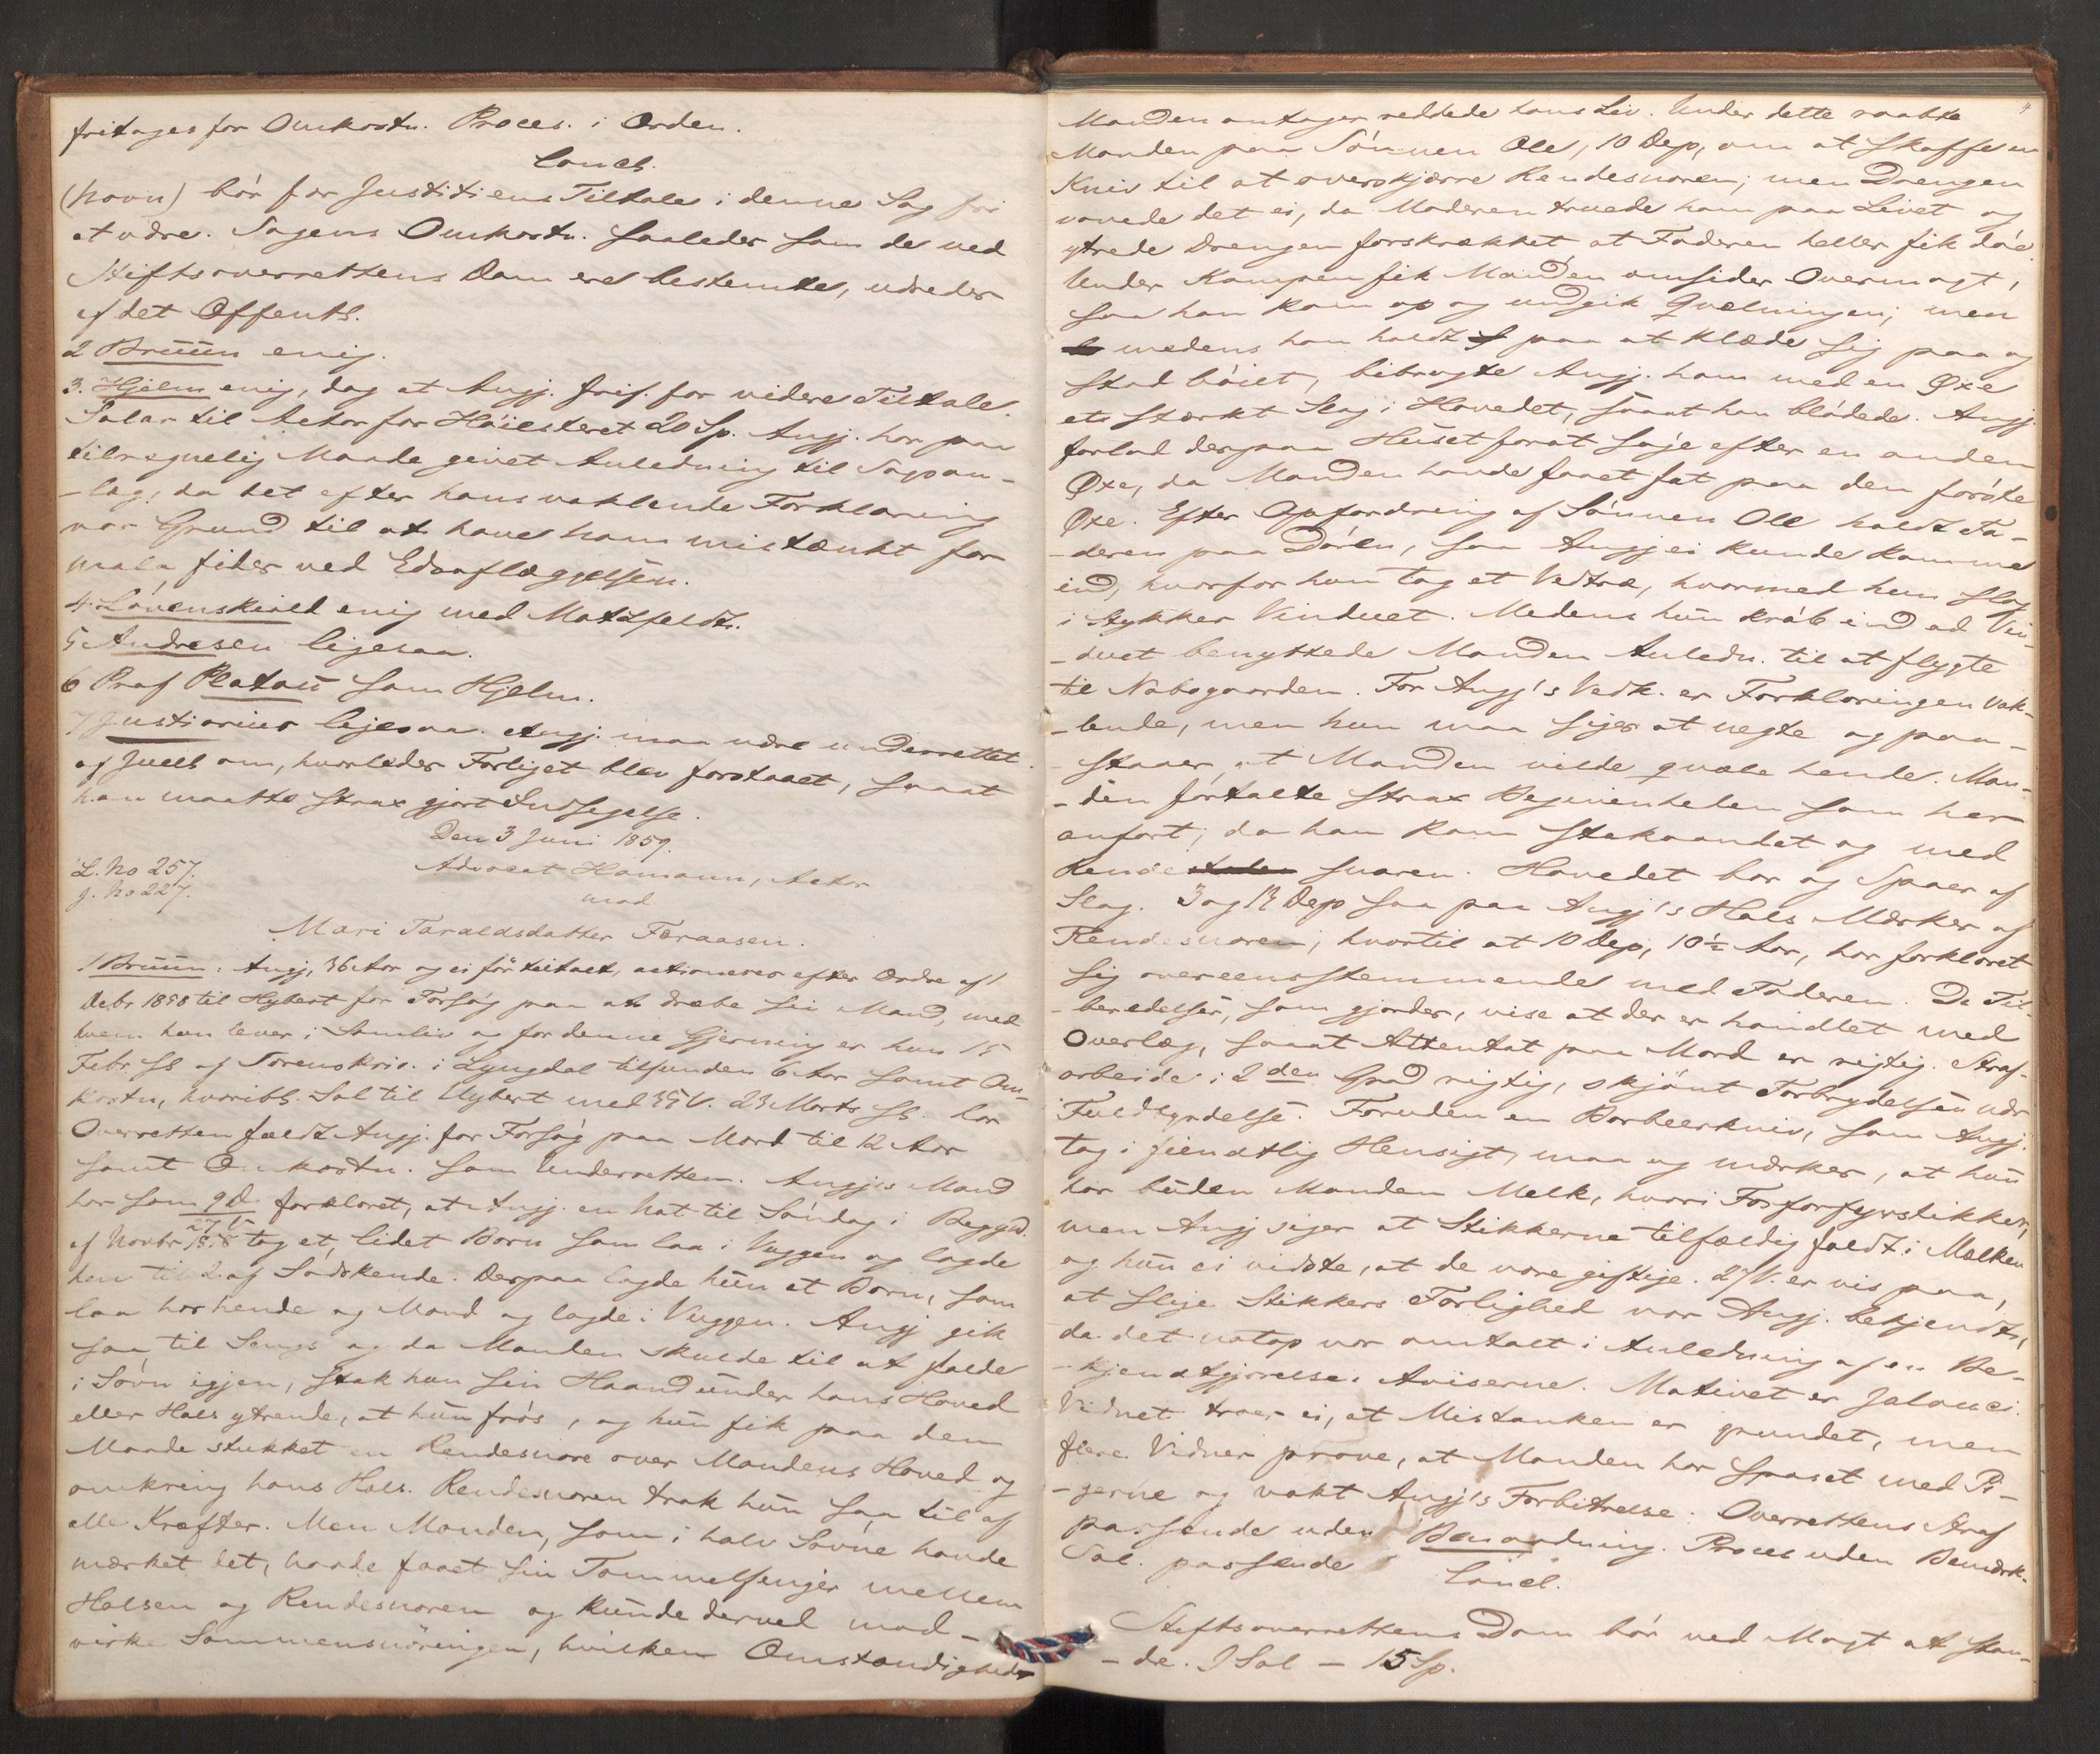 fritages for Omkostn. Proces. i Orden.
Concl.
(Navn) bör for Justitiens Tiltale i denne Sag fri
at være. Sagens Omkostn. saaledes som de ved
Stiftsoverrettens Dom ere bestemte, udredes
af det Offentl.
2 Bruun enig.
3. Hjelm enig, dog at Angj. frif. for videre Tiltale.
Salar til Actor for Höiesteret 20 Sp. Angj. har paa
tilregnelig Maade givet Anledning til Sagan-
-læg, da det efter hans vaklende Forklaring
var Grund til at have ham mistænkt for
mala fides ved Edsaflæggelsen.
4. Lövenskiold enig med Motzfeldt.
5 Andresen ligesaa.
6 Prof Platou som Hjelm.
7 Justiarius ligesaa. Angj. maa være underrettet
af Juell om, hvorledes Forliget blev forstaaet, saaat
han maatte strax gjort Indsigelse.
Den 3 Juni 1859.
L. No 257. Advocat Homann, Actor
g. No 227. mod
Mari Taraldsdatter Faraasen.
1 Bruun: Angj, 36 Aar og ei för tiltalt, actioneres efter Ordre af 1
Debr 1858 til Hybert for Forsög paa at dræbe sin Mand, med
hvem hun lever i Samliv og for denne Gjerning er hun 15
Febr sl af Sorenskriv. i Lyngdal tilfunden 6 Aar samt Om-
kostn, hvoribl. Sal til Hybert med 35 V. 23 Marts sl. har
Overretten fældt Angj. for Forsög paa Mord til 12 Aar
samt Omkostn. som Underretten. Angjs Mand
har som 9 D forklaret, at Angj. en Nat til Söndag i Beggynd.
27 V
af Novbr 1858 tog et lidet Barn som laa i Vuggen og lagde
hen til 2 af Södskende. Derpaa lagde hun et Barn, som
laa hos hende og Mand og lagde i Vuggen. Angj gik
saa til Sengs og da Manden skulde til at falde
i Sövn igjen, stak hun sin Haand under hans Hoved
eller Hals ytrende, at hun frös, og hun fik paa den
Maade stukket en Rendesnare over Mandens Hoved og
omkring hans Hals. Rendesnaren trak hun saa til af
alle Kræfter. Men Manden, som i halv Sövne havde
mærket det, havde faaet sin Tommelfinger mellem
Halsen og Rendesnaren og kunde derved mod-
virke Sammensnöringen, hvilken Omstændighed
Manden antager reddede hans Liv. Under dette raabte
Manden paa Sönnen Ole, 10 Dep, om at skaffe en
Kniv til at overskjære Rendesnaren; men Drengen
vovede det ei, da Moderen truede ham paa Livet og
ytrede Drengen forskrækket at Faderen heller fik döe.
Under Kampen fik Manden omsider Overmagt,
saa han kom op og undgik Qvælningen; men
medens han holdt paa at klæde sig paa og
stod böiet, bibragte Angj. ham med en Öxe
et stærkt Slag i Hovedet, saaat han blödede. Angj.
forlod derpaa Huset forat söge efter en anden
Öxe, da Manden havde faaet fat paa den förste
Öxe. Efter Opfordring af Sönnen Ole holdt Fa-
-deren paa Dören, saa Angj ei kunde komme
ind, hvorfor hun tog et Vedtræ, hvormed hun slog
i Stykker Vinduet. Medens hun kröb ind ad Vin-
-duet benyttede Manden Anledn. til at flygte
til Nabogaarden. For Angj's Vedk. er Forklaringen vak-
-lende, men hun maa siges at negte og paa-
staaer, at Manden vilde qvæle hende. Man-
-den fortalte strax Begivenheden som her
anfört; da han kom Stakaandet og med
Rendesnaren. Hovedet bar og Spoer af
Slag. 3 og 13 Dep saa paa Angj's Hals Mærker af
Rendesnaren; hvortil at 10 Dep, 10½ Aar, har forklaret
sig overeensstemmende med Faderen. De Til-
-beredelser, som gjordes, vise at der er handlet med
Overlæg, saaat Attentat paa Mord er rigtig. Straf-
arbeide i 2den Grad rigtig, skjönt Forbrydelsen nær
Fuldbyrdelse. Foruden en Barbeerkniv, som Angj.
tog i fiendtlig Hensigt, maa og mærkes, at hun
har buden Manden Melk, hvori Forforfyrstikker,
men Angj siger at Stikkerne tilfældig faldt i Melken
og hun ei vidste, at de vare giftige. 27 V. er vis paa,
at slige Stikkers Farlighed var Angj. bekjendt,
da det netop var omtalt i Anledning af en Be-
-kjendtgjørelse i Aviserne. Motivet er Jalousi.
Vidnet troer ei, at Mistanken er grundet, men
flere Vidner prove, at Manden har spaset med Pi-
-gerne og vakt Angj's Forbitrelse. Overrettens Straf
passende uden Benaadning. Proces uden Bemærk.
Sal. passende Concl.
Stiftsoverrettens Dom bör ved Magt at stan-
-de. I Sal – 15 Sp.